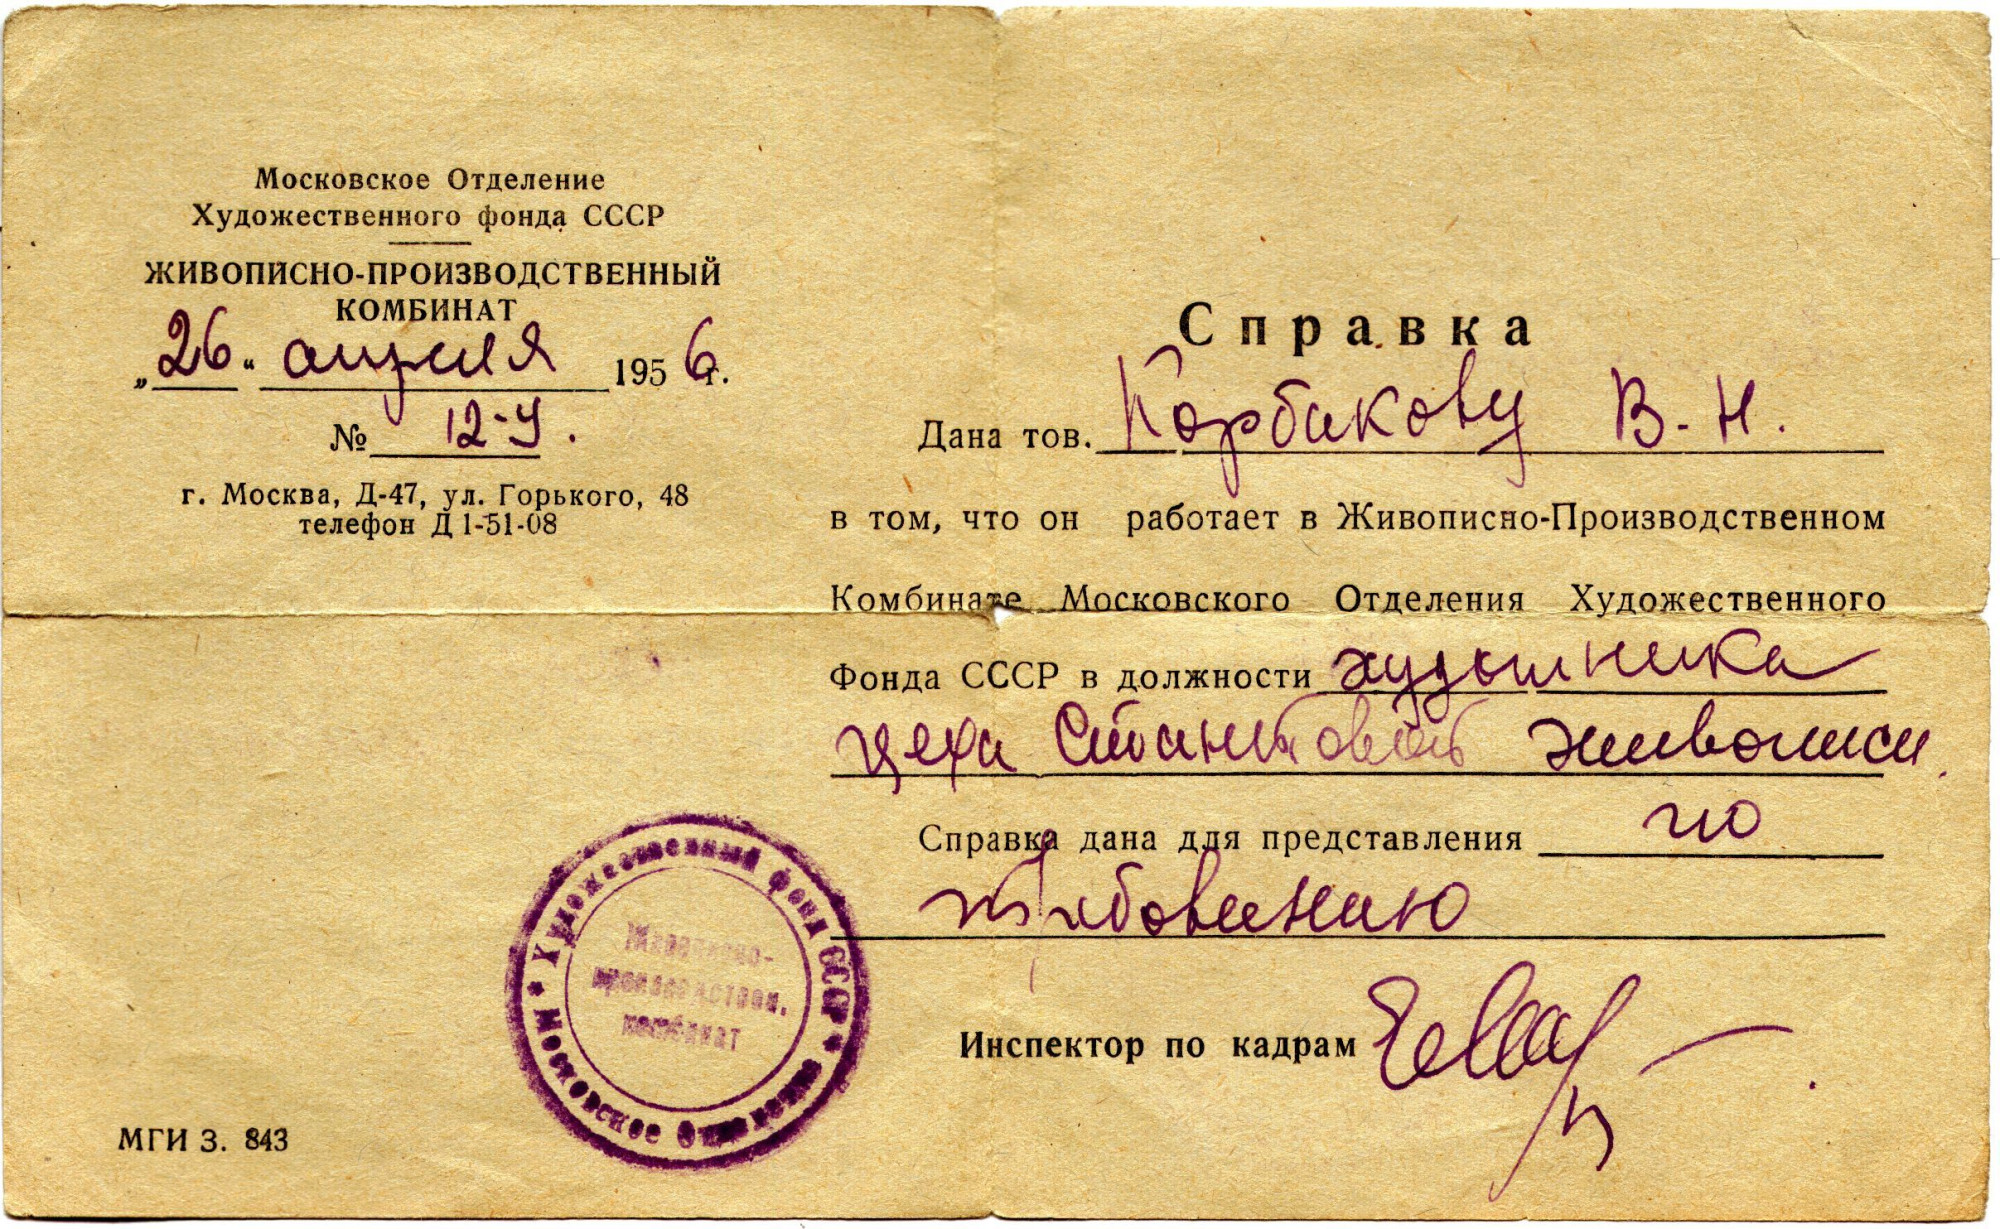 Московское Отделение
Художественного фонда СССР
ЖИВОПИСНО-ПРОИЗВОДСТВЕННЫЙ
КОМБИНАТ
„26“ апреля 1956 г.
№ 12-У.
г. Москва, Д-47, ул. Горького, 48
телефон Д 1-51-08
Справка
Дана тов. Корбакову В. Н.
в том, что он работает в Живописно-Производственном
Комбинате Московского Отделения Художественного
Фонда СССР в должности художника
цеха Станковой живописи.
Справка дана для представления по
требованию
Инспектор по кадрам
Художественный фонд СССР
* Московское Отделение *
Живописно-
производствен.
комбинат
МГИ З. 843